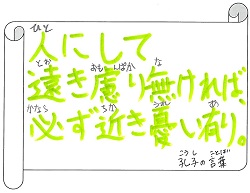 ひと
人にして
とお おもんぱか な
遠き慮り無ければ
かなら ちか うれ あ
必ず近き憂い有り。
こうし ことば
孔子の言葉